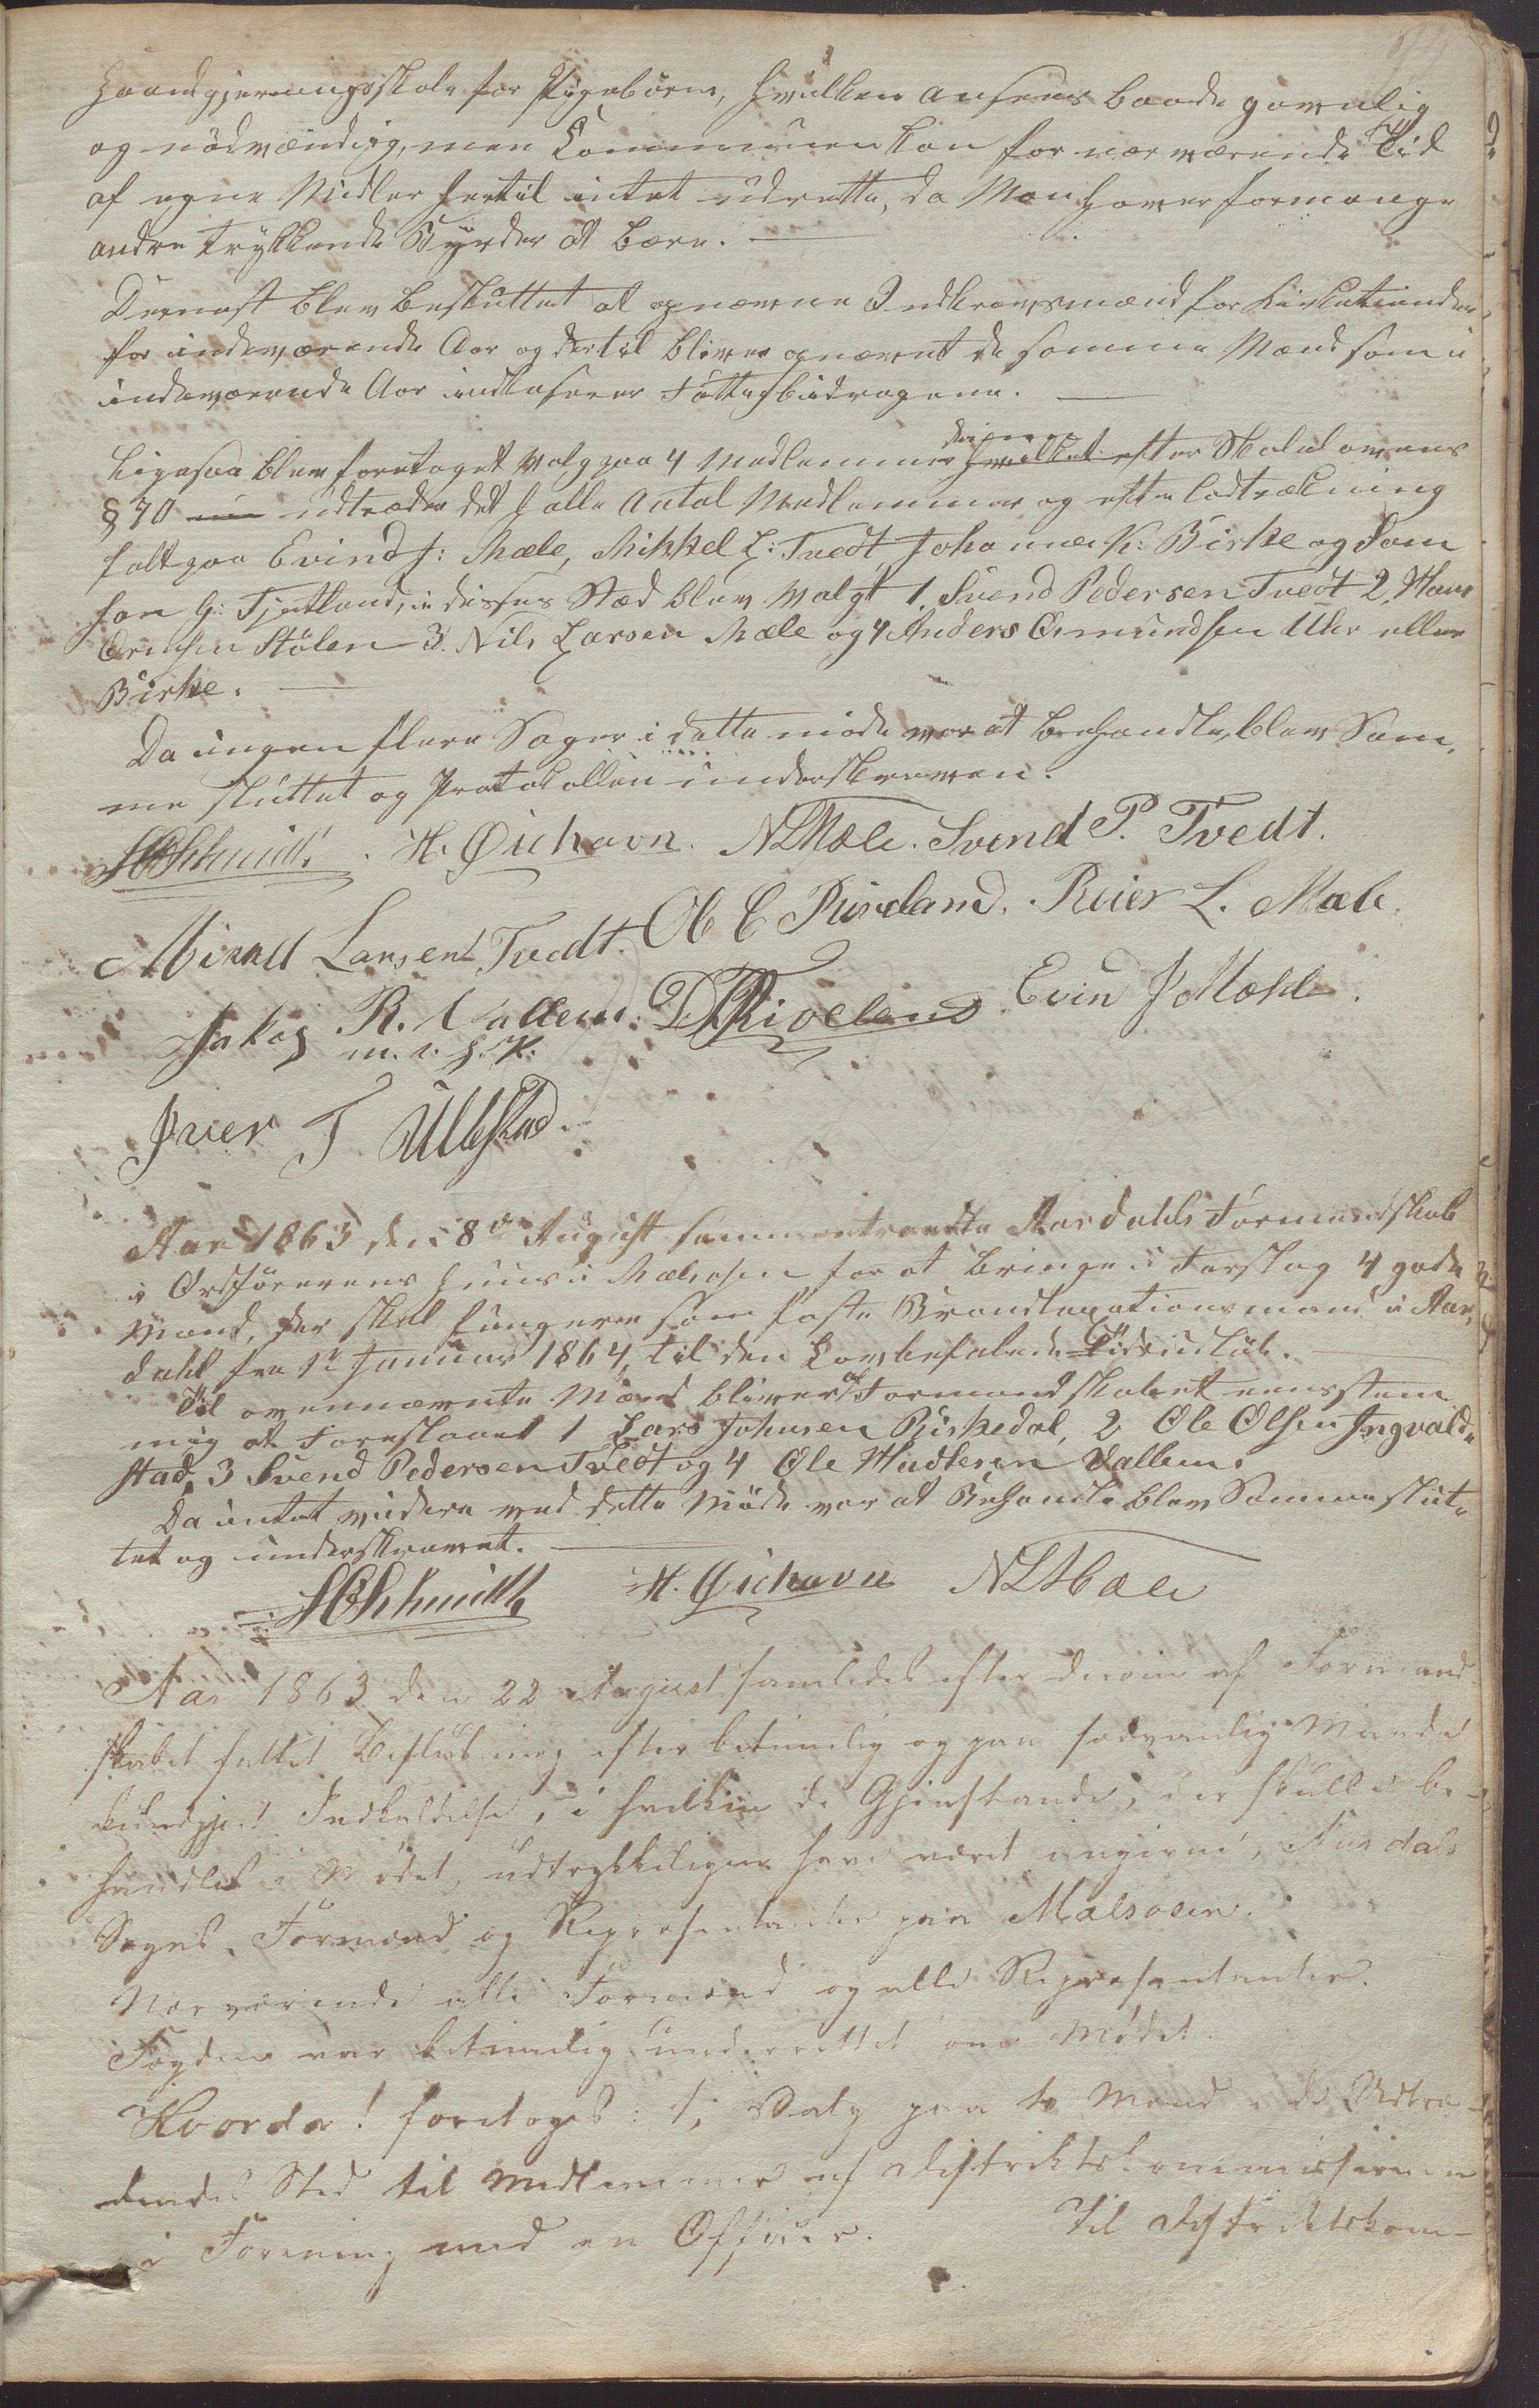 Haandgjerningsskole for Pigebörn, hvilken ansees baade gavnlig
og nödvændig, men Communen kan for nærværende Tid
af egne Midler hertil intet udrette, da Man haver formange
andre trykkende Byrder at bære.
Dernæst blev besluttet at opnævne Indkrævsmænd for
for indeværende Aar og dertil bliver opnævnt de samme Mænd som i
indeværende Aar indkaserer Fattigbidragene.
Ligesaa blev foretaget Valg paa 4 Medlemmer hvilket efter Skolelovens
§ 70 udtræder det halve Antal Medlemmer og efter Lodtrækning
falt paa Evind J: Mæle, Mikkel L: Tvedt, Johannes K: Birke og Sam
son G: Tjetland, i disses Stæd blev Valgt 1. Svend Pedersen Tvedt 2. Hans
Stölen 3. Nils Larsen Mæle og 4 Anders Osmundsen Uhr eller
Birke.
Da ingen flere Sager i dette möde var at behandle, blev Sam,
me sluttet og Protokollen underskreven.
HCSchmidt. H. Øiehavn. NLMæle. Svend P. Tvedt.
Mikkel Larsen Tvedt. Ole E Riveland. Reier L. Mæle.
Jakog R. Vallem. DRRiveland. Evin J Mæhle.
m. i. h. P.
Iver T Ullestad.
Aar 1863 den 8de August sammentraadte Aardahls Formandskab
i Ordförerens Huus i Mælsosen for at bringe i Forslag 4 gode
Mænd, der skal fungere som faste Brandtaxationsmænd i Aar,
dahl fra 1te Januar 1864, til den Lovbefalede Tids udlöb.
Til ovennævnte Mænd bliver af Formandskabet eensstem
mig at Foreslaaes 1 Lars Johnsen Riskedal, 2 Ole Olsen Ingvald-
stad, 3 Svend Pedersen Tvedt og 4 Ole Hudlesen Vallem.
Da intet videre ved dette Möde var at Behandle blev Samme slut-
tet og underskrevet.
HCSchmidt H. Øiehavn NLMæle
Aar 1863 den 22 August samledes efter derom af Formand-
skabet fattet Beslutning efter betimelig og paa sædvanlig Maade
kundgjort Indkaldelse, i hvilken de Gjenstande, der skulde be-
handles i Mödet, udtrykkeligen have været angivne, Aardals
Sogns Formænd og Repræsentanter paa Mælsosen.
Nærværende alle Formænd og alle Repræsentanter.
Fogden var betimelig underrettet om Mödet.
Hvorda! foretoges: 1, Valg paa to Mænd i de Udtræ-
dendes Sted til Medlemmer af Distriktskommissionen
i Forening med en Officer. Til Distriktskom-